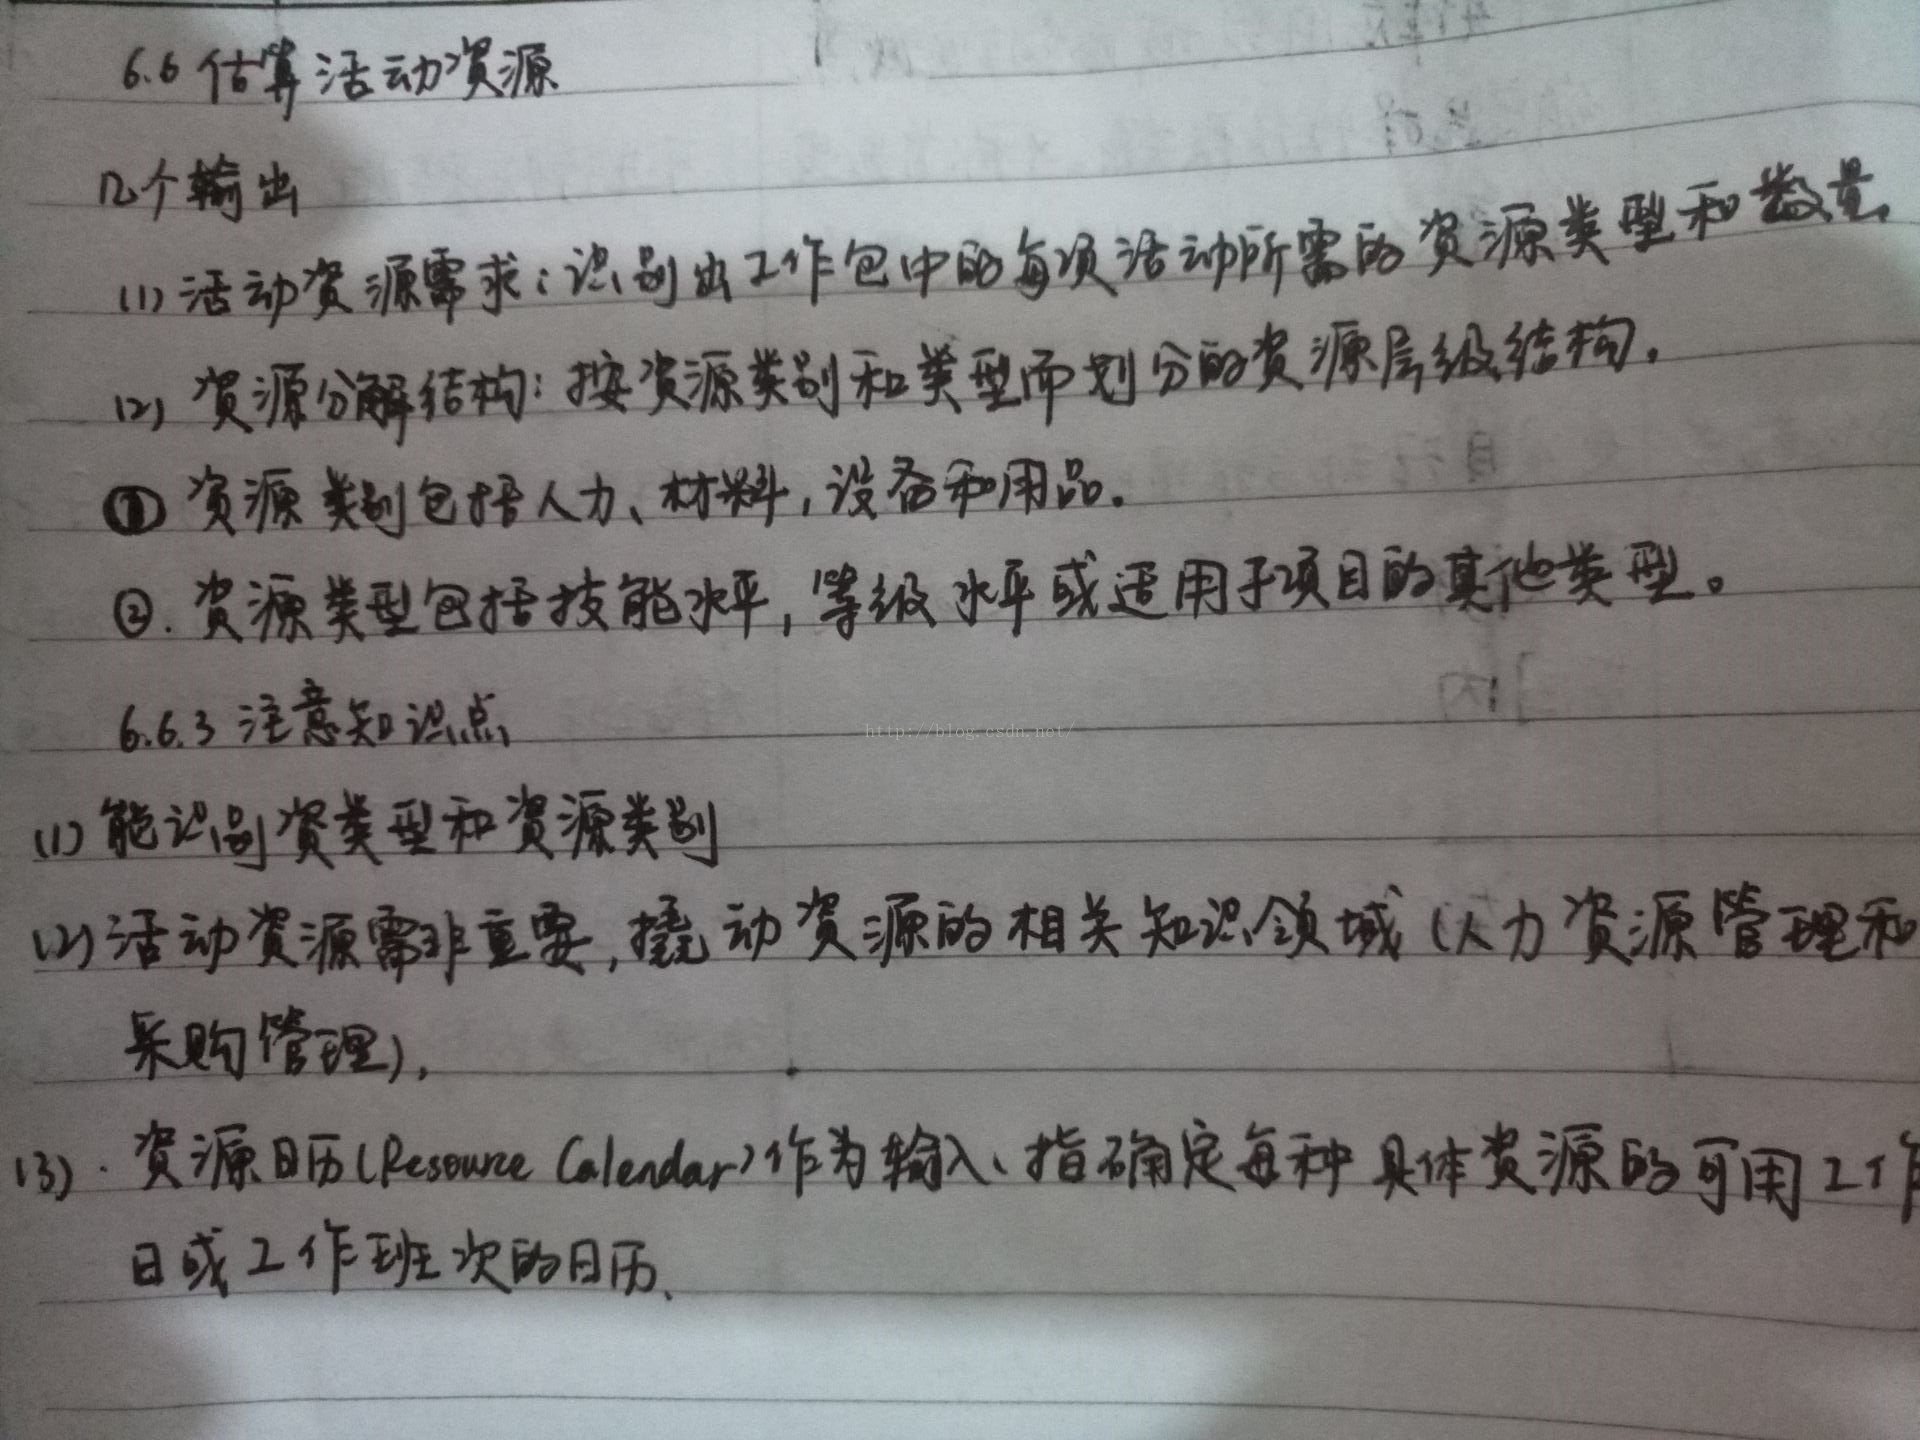 6.6 估算活动资源
几个输出
(1) 活动资源需求：识别出工作包中的每项活动所需的资源类型和数量.
(2) 资源分解结构：按资源类别和类型而划分的资源层级结构.
① 资源类别包括人力、材料，设备和用品.
②. 资源类型包括技能水平，等级水平或适用于项目的其他类型。
6.6.3 注意知识点
http://blog.csdn.net/
(1) 能识别资类型和资源类别
(2) 活动资源需非重要，撬动资源的相关知识领域 (人力资源管理和
采购管理).
(3). 资源日历 (Resource Calendar) 作为输入、指确定每种具体资源的可用工作
日或工作班次的日历.